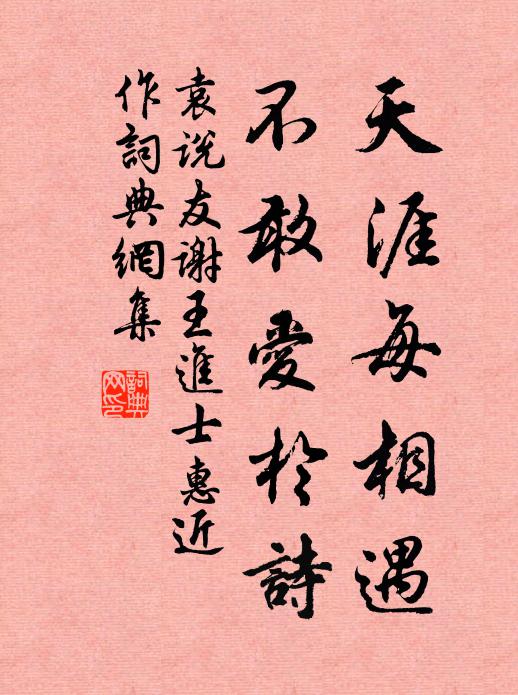 天涯每相遇
不敢愛於詩
袁说友謝王進士惠近
作詞典網集
詞典
网印